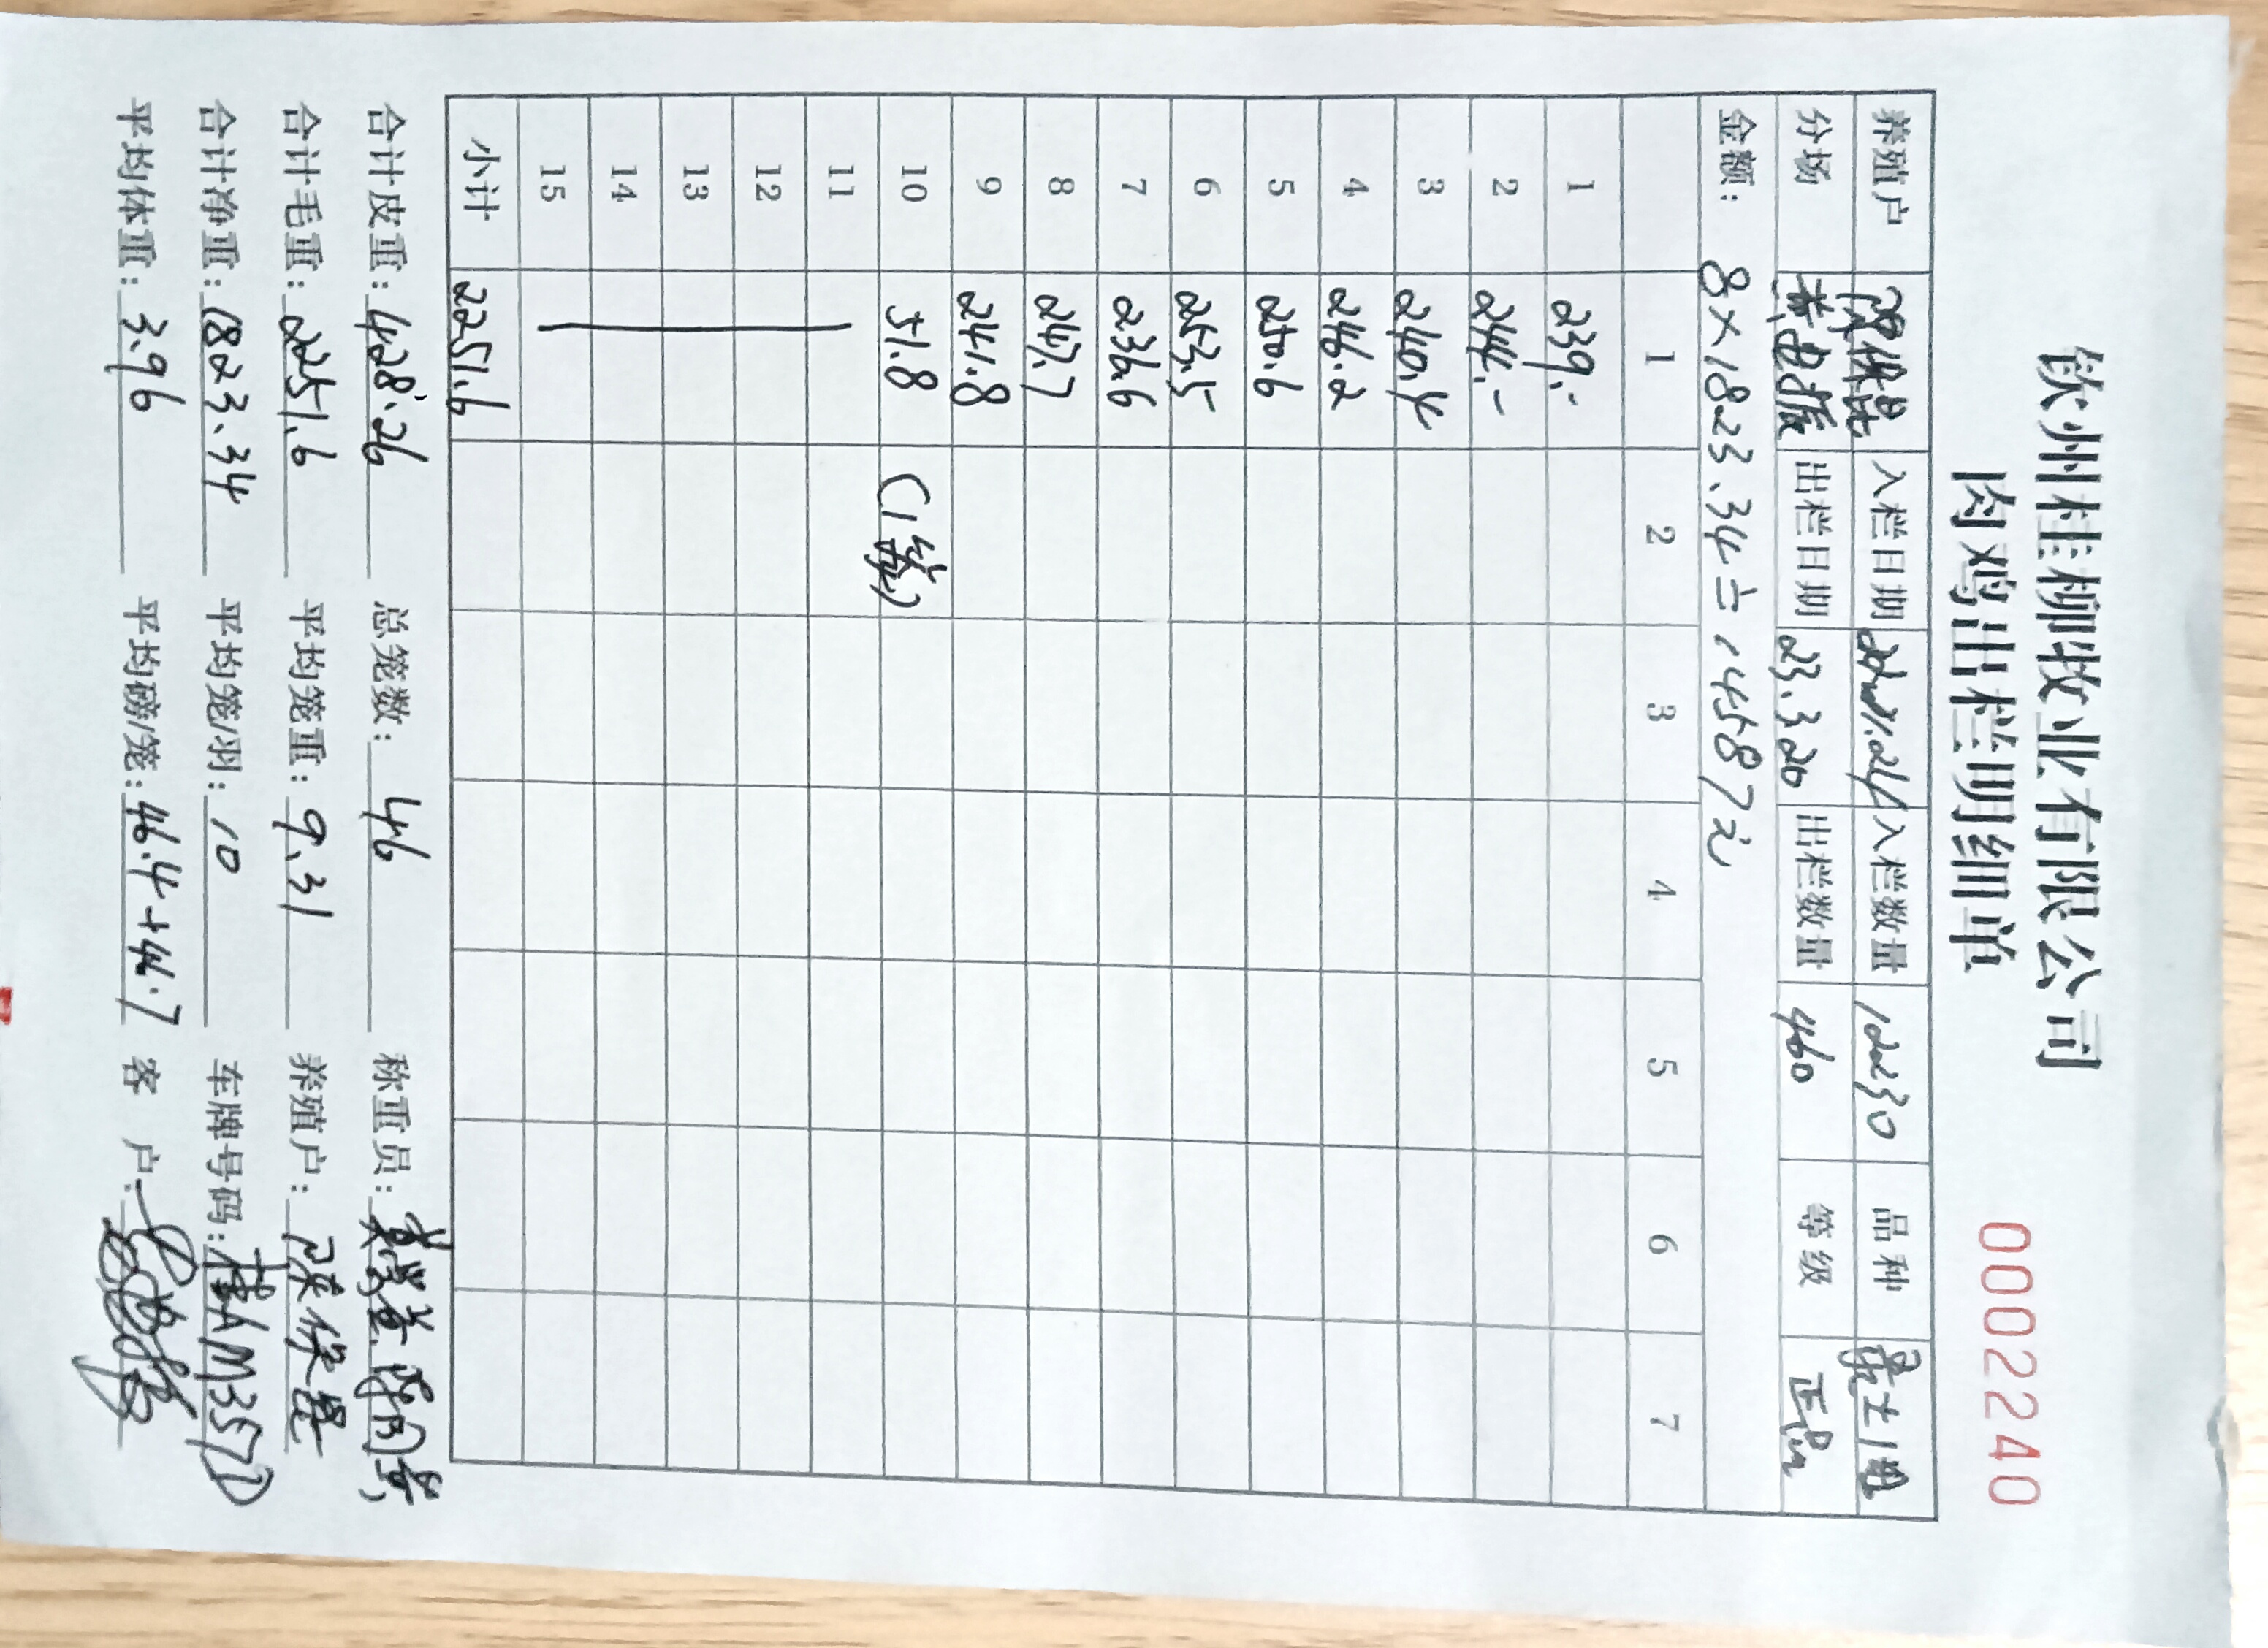 钦州桂柳牧业有限公司
肉鸡出栏明细单
0002240
养殖户 入栏日期 入栏数量 10230 品种
分场 出栏日期 23.3.20 出栏数量 460 等级 正品
金额： 8×1823.34=14587元
1 2 3 4 5 6 7
1 239.-
2 244.-
3 240.4
4 246.2
5 250.6
6 253.5
7 236.6
8 247.7
9 241.8
10 51.8 (1笼)
11
12
13
14
15
小计 2251.6
合计皮重：428.26 总笼数：46 称重员：
合计毛重：2251.6 平均笼重：9.31 养殖户：
合计净重：1823.34 平均笼/羽：10 车牌号码：桂AM357D
平均体重：3.96 平均磅/笼：46.4+44.7 客 户：